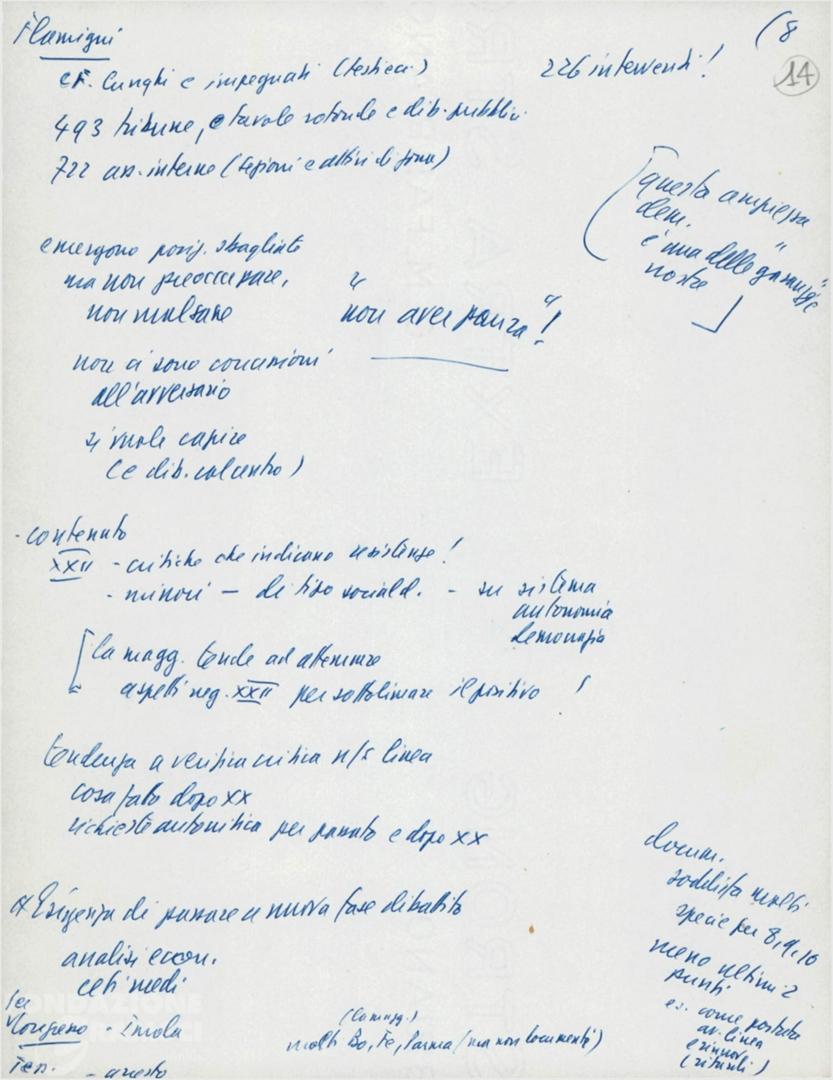 Flamigni
226 interventi!
(8
14
cr. lunghi e impegnati
493 tribune, tavole rotonde e dib. pubblici
722 ass. interne (sezioni e attivi di zona)
[questa ampiezza
dem.
è una delle "garanzie"
nostre
]
emergono posiz. sbagliate
ma non preoccupare,
non malsane
"non aver paura"!
non ci sono concessioni
all'avversario
si vuole capire
(e dib. col centro)
- contenuto
XXII - critiche che indicano resistenze!
- minori - di tipo sociald. - su sistema
autonomia
democrazia
[la magg. tende ad attenuare
aspetti neg. XXII per sottolineare il positivo !
tendenza a verifica critica n/s linea
cosa fatto dopo XX
richieste autocritica per passato e dopo XX
Esigenza di passare a nuova fase dibattito
analisi econ.
ceti medi
docum.
soddisfa molti
specie per 8, 9, 10
meno ultimi 2
punti
es. come portata
av. linea
e rinnovi
(ritardi)
- Imola
(la magg.)
molti Bo, Fe, Parma (ma non documenti)
- arresto
FONDAZIONE